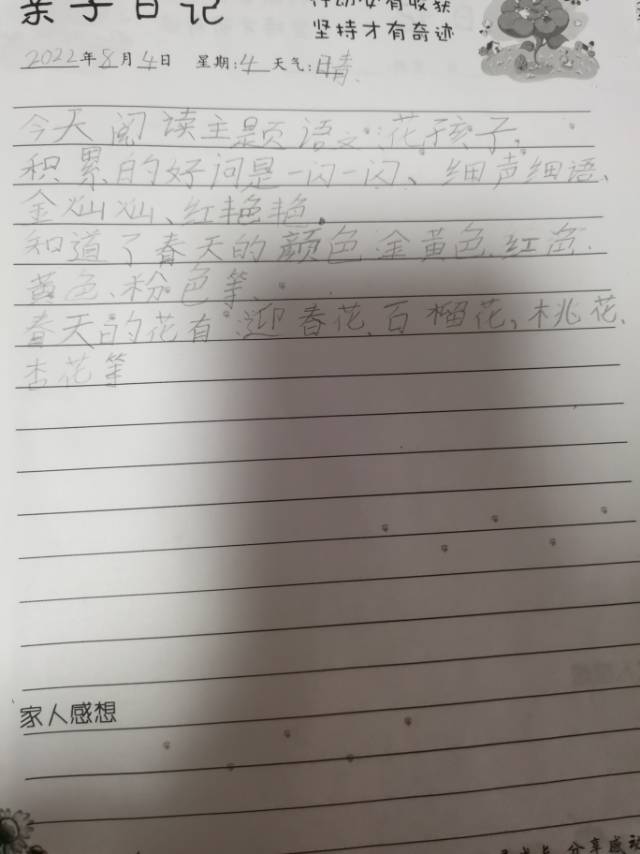 亲子日记
行动必有收获
坚持才有奇迹
2022年8月4日 星期:4 天气:晴
今天阅读主题语文:花孩子。
积累的好词是一闪一闪、细声细语、
金灿灿、红艳艳。
知道了春天的颜色金黄色、红色、
黄色、粉色等、
春天的花有:迎春花、百榴花,桃花、
杏花等
家人感想
分享感动